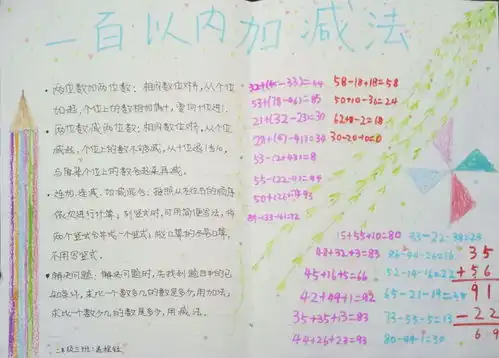 一百以内加减法
• 两位数加两位数：相同数位对齐，从个位
加起，个位上的数相加满十，要向十位进1.
• 两位数减两位数：相同数位对齐，从个位
减起，个位上的数不够减，从十位退1当10，
与原来个位上的数合起来再减。
连加、连减、加减混合：按照从左往右的顺序
依次进行计算，列竖式时，可用简便写法，将
两个竖式合并成一个竖式，能口算的尽量口算，
不用写竖式。
• 解决问题：解决问题时，先找到题目中的已
知条件，求比一个数多几的数是多少，用加法，
求比一个数少几的数是多少，用减法。
二年级三班：
53+(78-46)=85
21+(32-23)=30
50+(22+)=93
58-18+18=58
50+10-36=24
62+8-2=18
30-20+0=0
15+55+10=80
48+32+3=83
45+16+5=66
42+49+1=92
35+35+13=83
44+26+23=93
33-22-38=23
86-44-26=16
52-14-16=22
65-21-19=
73-55-5=13
80-49-1=30
35
+56
91
-22
69